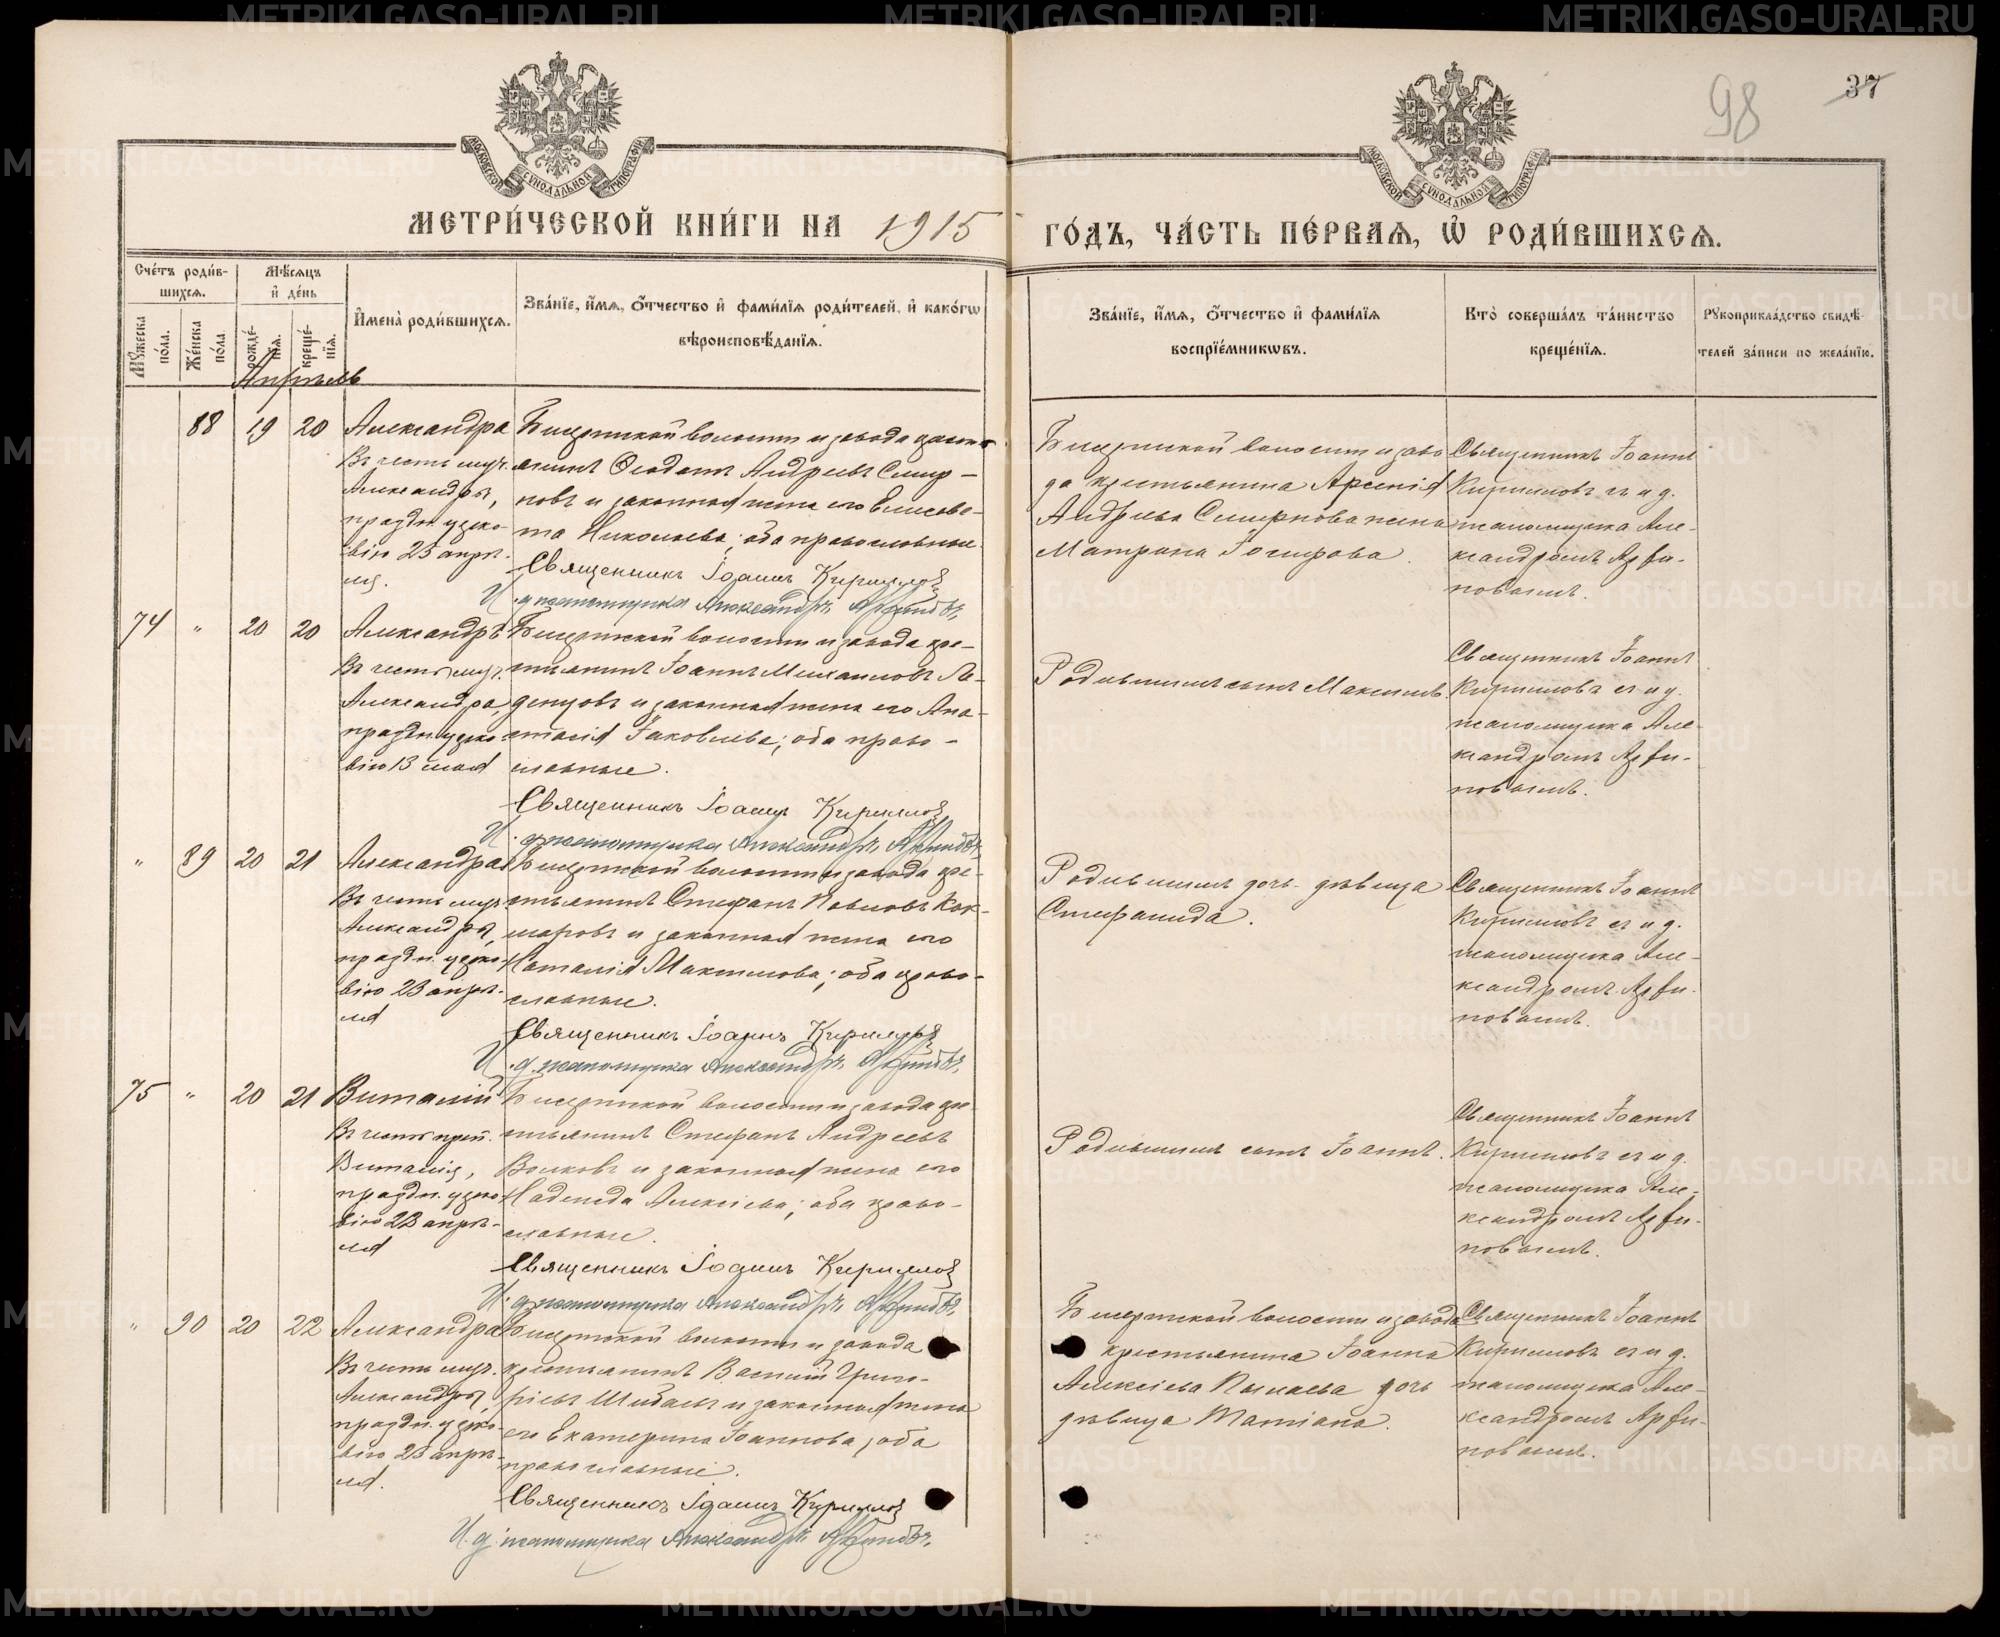 98
37
МЕТРИ́ЧЕСКОЙ КНИ́ГИ НА 1915
ГО́ДЪ, ЧА́СТЬ ПЕ́РВАЯ, Ѡ РОДИ́ВШИХСЯ.
МОСКОВСКОЙ СѴНОДАЛЬНОЙ ТИПОГРАФІИ
МОСКОВСКОЙ СѴНОДАЛЬНОЙ ТИПОГРАФІИ
Сче́тъ роди́в-
шихся.
Мѣ́сяцъ
и де́нь
Му́жеска
по́ла.
Же́нска
по́ла.
рожде́-
нія.
креще́-
нія.
Имена̀ роди́вшихся.
Зва́ніе, и́мя, ѻ́тчество и фами́лія роди́телей, и како́гѡ
вѣроисповѣ́данія.
Зва́ніе, и́мя, ѻ́тчество и фами́лія
воспріе́мникѡвъ.
Кто̀ соверша́лъ та́инство
креще́нія.
Рукоприкла́дство свидѣ́-
телей за́писи по жела́нію.
Апрѣль
88 19 20
Александра
Въ честь муч.
Александры,
праздн. церко-
вію 23 апрѣ-
ля.
Бисертской волости и завода кресть-
янинъ Ѳеодотъ Андреевъ Смир-
новъ и законная жена его Елисаве-
та Николаева; оба православные.
Священникъ Іоаннъ Кирилловъ
И. д. псаломщика Александръ
Бисертской волости и заво
да крестьянина Арсенія
Андреева Смирнова жена
Матрона
Священникъ Іоаннъ
Кирилловъ съ и. д.
псаломщика Але-
ксандромъ Арфи-
новымъ.
74 " 20 20
Александръ
Въ честь муч.
Александра,
праздн. церко-
вію 13 мая
Бисертской волости и завода кре-
стьянинъ Іоаннъ Михаиловъ Ла-
денцовъ и законная жена его Ана-
стасія Іаковлева; оба право-
славные.
Священникъ Іоаннъ Кирилловъ
И. д. псаломщика Александръ
Родившихъ сынъ Максимъ.
Священникъ Іоаннъ
Кирилловъ съ и. д.
псаломщика Але-
ксандромъ Арфи-
новымъ.
" 89 20 21
Александра
Въ честь муч.
Александры,
праздн. церко-
вію 23 апрѣ-
ля
Бисертской волости и завода кре-
стьянинъ Стефанъ Павловъ Кок-
шаровъ и законная жена его
Наталія Максимова; оба право-
славные.
Священникъ Іоаннъ Кирилловъ
И. д. псаломщика Александръ
Родившихъ дочь дѣвица
Стефанида.
Священникъ Іоаннъ
Кирилловъ съ и. д.
псаломщика Але-
ксандромъ Арфи-
новымъ.
75 " 20 21
Виталій
Въ честь преп.
Виталія,
праздн. церко-
вію 22 апрѣ-
ля
Бисертской волости и завода кре-
стьянинъ Стефанъ Андреевъ
Волковъ и законная жена его
Надежда Алексіева; оба право-
славные.
Священникъ Іоаннъ Кирилловъ
И. д. псаломщика Александръ
Родившихъ сынъ Іоаннъ.
Священникъ Іоаннъ
Кирилловъ съ и. д.
псаломщика Але-
ксандромъ Арфи-
новымъ.
" 90 20 22
Александра
Въ честь муч.
Александры,
праздн. церко-
вію 23 апрѣ-
ля.
Бисертской волости и завода
крестьянинъ Василій Григо-
ріевъ и законная жена
его Екатерина Іоаннова; оба
православные.
Священникъ Іоаннъ Кирилловъ
И. д. псаломщика Александръ
Бисертской волости и завода
крестьянина Іоанна
Алексіева дочь
дѣвица Татіана.
Священникъ Іоаннъ
Кирилловъ съ и. д.
псаломщика Але-
ксандромъ Арфи-
новымъ.
METRIKI.GASO-URAL.RU